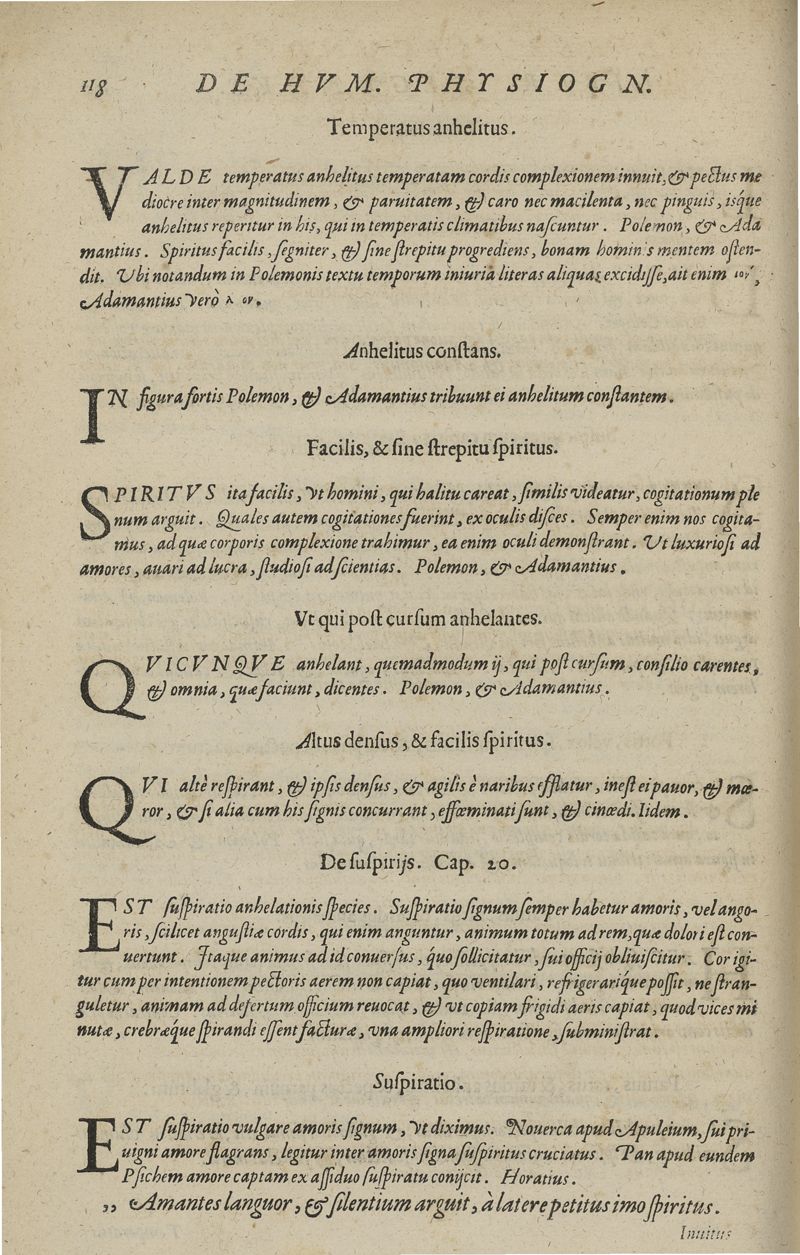 118 DE HVM. PHYSIOGN.
Temperatus anhelitus.
VALDE temperatus anhelitus temperatam cordis complexionem innuit, & pectus me
diocre inter magnitudinem, & paruitatem, & caro nec macilenta, nec pinguis, isq́ue
anhelitus reperitur in his, qui in temperatis climatibus naſcuntur. Polemon, & Ada
mantius. Spiritus facilis, ſegniter, & ſine ſtrepitu progrediens, bonam hominis mentem oſten-
dit. Vbi notandum in Polemonis textu temporum iniuria literas aliquas excidiſſe, ait enim
Adamantius verò
Anhelitus conſtans.
IN figura fortis Polemon, & Adamantius tribuunt ei anhelitum conſtantem.
Facilis, & ſine ſtrepitu ſpiritus.
SPIRITVS ita facilis, vt homini, qui halitu careat, ſimilis videatur, cogitationum ple
num arguit. Quales autem cogitationes fuerint, ex oculis diſces. Semper enim nos cogita-
mus, ad quæ corporis complexione trahimur, ea enim oculi demonſtrant. Vt luxurioſi ad
amores, auari ad lucra, ſtudioſi ad ſcientias. Polemon, & Adamantius.
Vt qui poſt curſum anhelantes.
QVICVNQVE anhelant, quemadmodum ij, qui poſt curſum, conſilio carentes,
& omnia, quæ faciunt, dicentes. Polemon, & Adamantius.
Altus denſus, & facilis ſpiritus.
QVI altè reſpirant, & ipſis denſus, & agilis è naribus efflatur, ineſt ei pauor, & mœ-
ror, & ſi alia cum his ſignis concurrant, effœminati ſunt, & cinœdi. Iidem.
De ſuſpirijs. Cap. 20.
EST ſuſpiratio anhelationis ſpecies. Suſpiratio ſignum ſemper habetur amoris, vel ango-
ris, ſcilicet anguſtiæ cordis, qui enim anguntur, animum totum ad rem, quæ dolori eſt con-
uertunt. Itaque animus ad id conuerſus, q́uo ſollicitatur, ſui officij obliuiſcitur. Cor igi-
tur cum per intentionem pectoris aerem non capiat, quo ventilari, refrigerariq́ue poſſit, ne ſtran-
guletur, animam ad deſertum officium reuocat, & vt copiam frigidi aeris capiat, quod vices mi
nutæ, crebræq́ue ſpirandi eſſent facturæ, vna ampliori reſpiratione, ſubminiſtrat.
Suſpiratio.
EST ſuſpiratio vulgare amoris ſignum, vt diximus. Nouerca apud Apuleium, ſui pri-
uigni amore flagrans, legitur inter amoris ſigna ſuſpiritus cruciatus. Pan apud eundem
Pſichem amore captam ex aſſiduo ſuſpiratu conijcit. Horatius.
,, Amantes languor, & ſilentium arguit, à latere petitus imo ſpiritus.
Inuitus